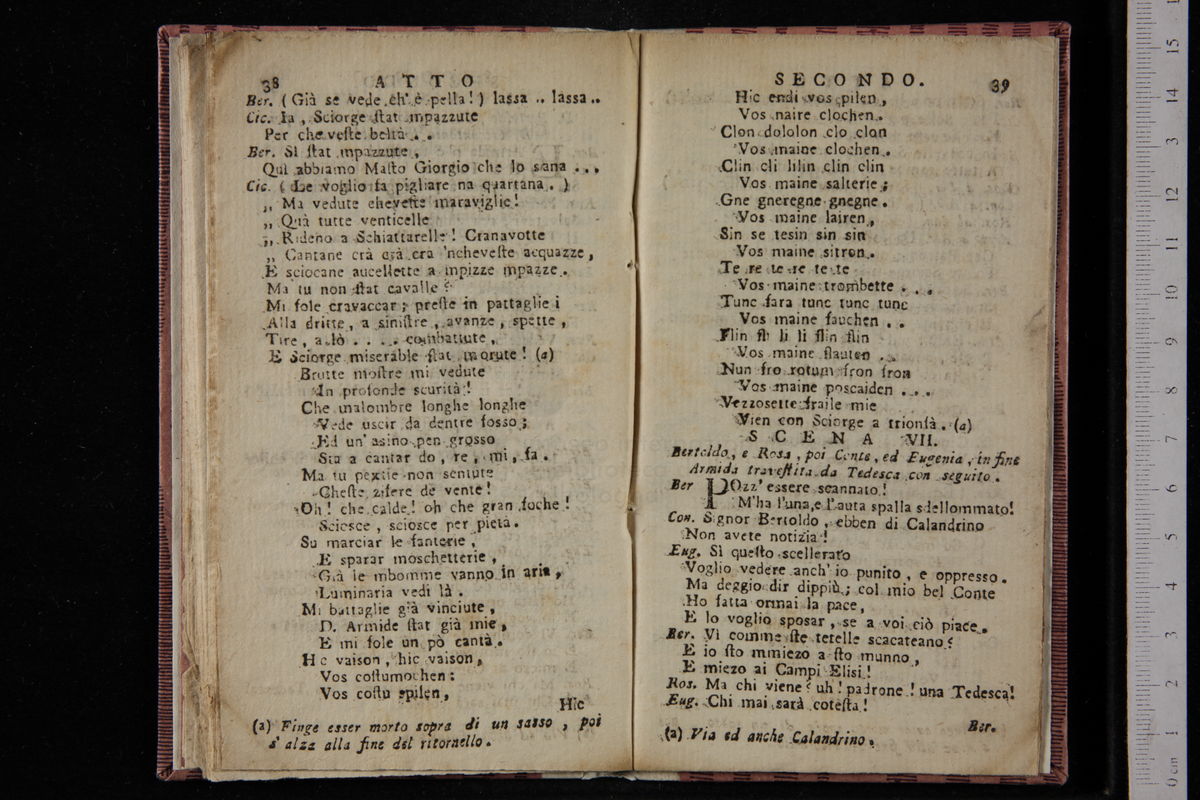 38 ATTO
Ber. ( Già se vede eh' è pella! ) lassa .. lassa ..
Cic. Ia , Sciorge ſtat mpazzute
Per che veſte beltà . .
Ber. Sì ſtat mpazzute ,
Qui abbiamo Maſto Giorgio che lo sana . . .
Cic. ( Le voglio fa pigliare na quartana . )
„ Ma vedute cheveſte maraviglie!
„ Quà tutte venticelle
„ Rideno a Schiattarelle! Cranavotte
„ Cantane crà crà cra 'ncheveſte acquazze ,
E sciocane aucellette a mpizze mpazze .
Ma tu non ſtat cavalle ?
Mi fole cravaccar ; preſte in pattaglie i
Alla dritte , a siniſtre , avanze , spette ,
Tire , a lò . . . . combattute ,
E Sciorge miserable ſtat morute! (a)
Brutte moſtre mi vedute
In profonde scurità!
Che malombre longhe longhe
Vede uscir da dentre fosso ;
Ed un' asino pen grosso
Sta a cantar do , re , mi , fa .
Ma tu pextie non sentute
Cheſte zifere de vente!
Oh! che calde! oh che gran foche!
Sciosce , sciosce per pietà .
Su marciar le fanterie ,
E sparar moschetterie ,
Già le mbomme vanno in aria ,
Luminaria vedi là .
Mi battaglie già vinciute ,
D. Armide ſtat già mie ,
E mi fole un pò cantà .
Hic vaison , hic vaison ,
Vos coſtumochen :
Vos coſtu spilen ,
Hic
(a) Finge esser morto sopra di un sasso , poi
s' alza alla fine del ritornello .
SECONDO. 39
Hic endi vos pilen ,
Vos naire clochen .
Clon dololon clo clon
Vos maine clochen .
Clin cli lilin clin clin
Vos maine salterie ;
Gne gneregne gnegne .
Vos maine lairen ,
Sin se tesin sin sin
Vos maine sitron .
Te re te re te te
Vos maine trombette . . .
Tunc fara tunc tunc tunc
Vos maine fauchen . .
Flin fli li li flin flin
Vos maine flauten . .
Nun fro rotum fron fron
Vos maine poscaiden . . .
Vezzosette fraile mie
Vien con Sciorge a trionfà . (a)
SCENA VII.
Bertoldo , e Rosa , poi Conte , ed Eugenia , in fine
Armida traveſtita da Tedesca con seguito .
Ber POzz' essere scannato!
M'ha l'una, e l'auta spalla sdellommato!
Con. Signor Bertoldo , ebben di Calandrino
Non avete notizia!
Eug. Sì queſto scellerato
Voglio vedere anch' io punito , e oppresso .
Ma deggio dir dippiù ; col mio bel Conte
Ho fatta ormai la pace ,
E lo voglio sposar , se a voi ciò piace .
Ber. Vì comme ſte tetelle scacateano?
E io ſto mmiezo a ſto munno ,
E miezo ai Campi Elisi!
Ros. Ma chi viene? uh! padrone! una Tedesca!
Eug. Chi mai sarà coteſta!
Ber.
(a) Via ed anche Calandrino .